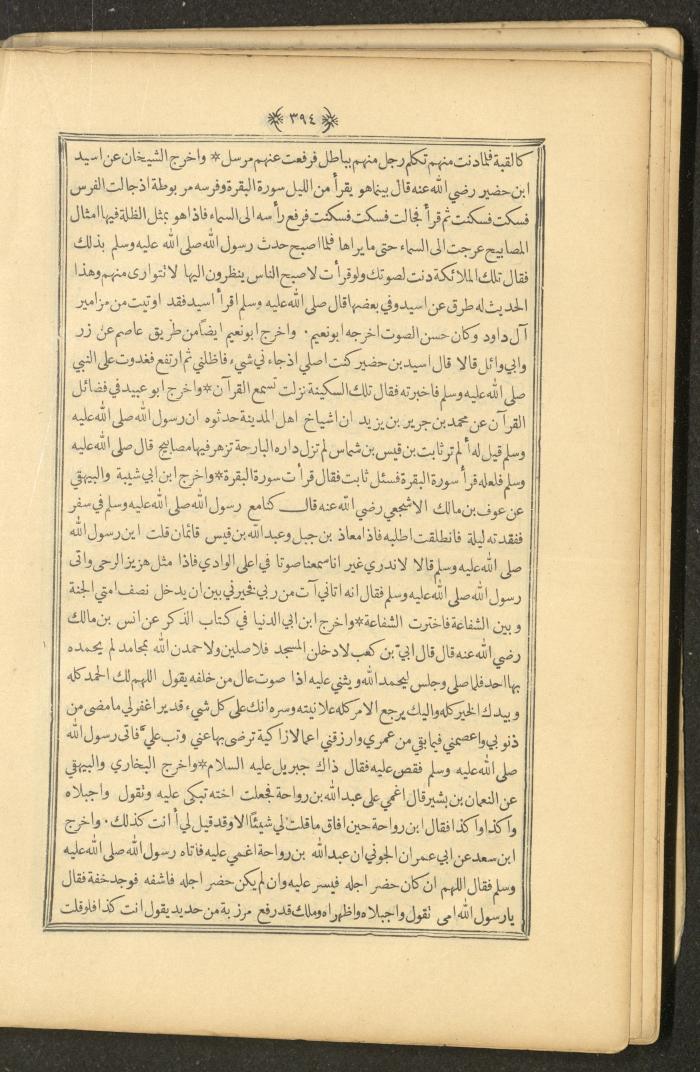 ﴿ ٣٩٤ ﴾
كالقبة فلما دنت منهم تكلم رجل منهم بباطل فرفعت عنهم مرسل * واخرج الشيخان عن اسيد
ابن حضير رضي الله عنه قال بينما هو يقرأ من الليل سورة البقرة وفرسه مربوطة اذ جالت الفرس
فسكت فسكنت ثم قرأ فجالت فسكت فسكنت فرفع رأسه الى السماء فاذا هو بمثل الظلة فيها امثال
المصابيح عرجت الى السماء حتى ما يراها فلما اصبح حدث رسول الله صلى الله عليه وسلم بذلك
فقال تلك الملائكة دنت لصوتك ولو قرأت لاصبح الناس ينظرون اليها لا تتوارى منهم وهذا
الحديث له طرق عن اسيد وفي بعضها قال صلى الله عليه وسلم اقرأ اسيد فقد اوتيت من مزامير
آل داود وكان حسن الصوت اخرجه ابو نعيم . واخرج ابو نعيم ايضاً من طريق عاصم عن زر
وابي وائل قالا قال اسيد بن حضير كنت اصلي اذ جاءني شيء فاظلني ثم ارتفع فغدوت على النبي
صلى الله عليه وسلم فاخبرته فقال تلك السكينة نزلت تسمع القرآن * واخرج ابو عبيد في فضائل
القرآن عن محمد بن جرير بن يزيد ان اشياخ اهل المدينة حدثوه ان رسول الله صلى الله عليه
وسلم قيل له ألم تر ثابت بن قيس بن شماس لم تزل داره البارحة تزهر فيها مصابيح قال صلى الله عليه
وسلم فلعله قرأ سورة البقرة فسئل ثابت فقال قرأت سورة البقرة * واخرج ابن ابي شيبة والبيهقي
عن عوف بن مالك الاشجعي رضي الله عنه قال كنا مع رسول الله صلى الله عليه وسلم في سفر
ففقدته ليلة فانطلقت اطلبه فاذا معاذ بن جبل وعبد الله بن قيس قائمان قلت اين رسول الله
صلى الله عليه وسلم قالا لا ندري غير انا سمعنا صوتا في اعلى الوادي فاذا مثل هزيز الرحى واتى
رسول الله صلى الله عليه وسلم فقال انه اتاني آت من ربي فخيرني بين ان يدخل نصف امتي الجنة
وبين الشفاعة فاخترت الشفاعة * واخرج ابن ابي الدنيا في كتاب الذكر عن انس بن مالك
رضي الله عنه قال قال ابيّ بن كعب لادخلن المسجد فلاصلين ولاحمدن الله بمحامد لم يحمده
بها احد فلما صلى وجلس ليحمد الله ويثني عليه اذا صوت عال من خلفه يقول اللهم لك الحمد كله
وبيدك الخير كله واليك يرجع الامر كله علانيته وسره انك على كل شيء قدير اغفر لي ما مضى من
ذنوبي واعصمني فيما بقي من عمري وارزقني اعمالا زاكية ترضى بها عني وتب عليّ فاتى رسول الله
صلى الله عليه وسلم فقص عليه فقال ذاك جبريل عليه السلام * واخرج البخاري والبيهقي
عن النعمان بن بشير قال اغمي على عبد الله بن رواحة فجعلت اخته تبكى عليه وتقول واجبلاه
واكذا واكذا فقال ابن رواحة حين افاق ما قلت لي شيئًا الا وقد قيل لي أأنت كذلك . واخرج
ابن سعد عن ابي عمران الجوني ان عبد الله بن رواحة اغمي عليه فاتاه رسول الله صلى الله عليه
وسلم فقال اللهم ان كان حضر اجله فيسر عليه وان لم يكن حضر اجله فاشفه فوجد خفة فقال
يارسول الله امي تقول واجبلاه واظهراه وملك قد رفع مرزبة من حديد يقول انت كذا فلو قلت